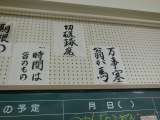 万事塞
翁が馬
切磋琢磨
時間は
皆のもの
の予定
月日( )